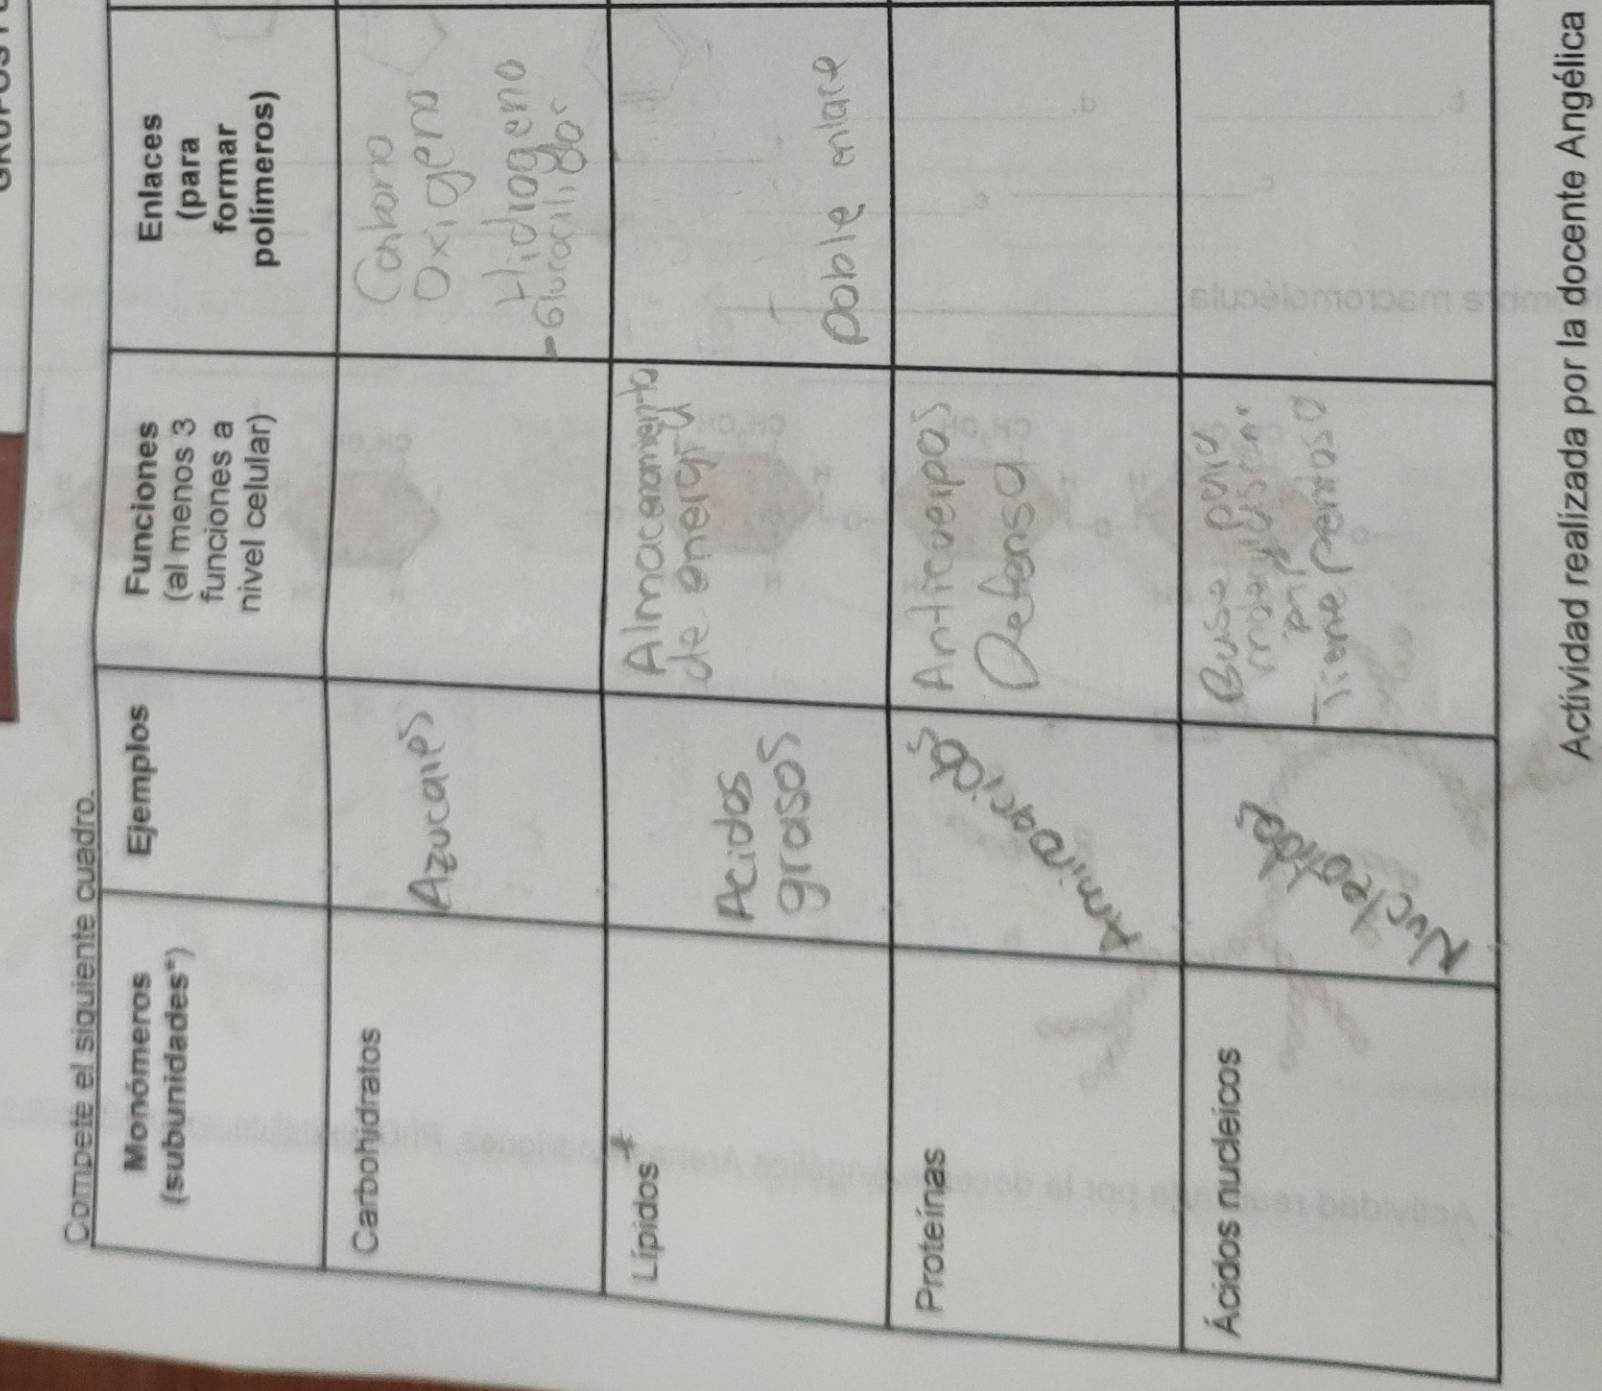 Compete el siguiente cuadro.
Monómeros
(subunidades*)
Ejemplos
Funciones
(al menos 3
funciones a
nivel celular)
Enlaces
(para
formar
polímeros)
Carbohidratos
Azucares
Carbono
Oxigeno
Hidrogeno
Lípidos *
Acidos
grasos
Almacenamiento
de energia
Doble enlace
Proteínas
Aminoacidos
Anticuerpos
Defensa
Ácidos nucleicos
Nucleotidos
Base para
Tiene
Actividad realizada por la docente Angélica